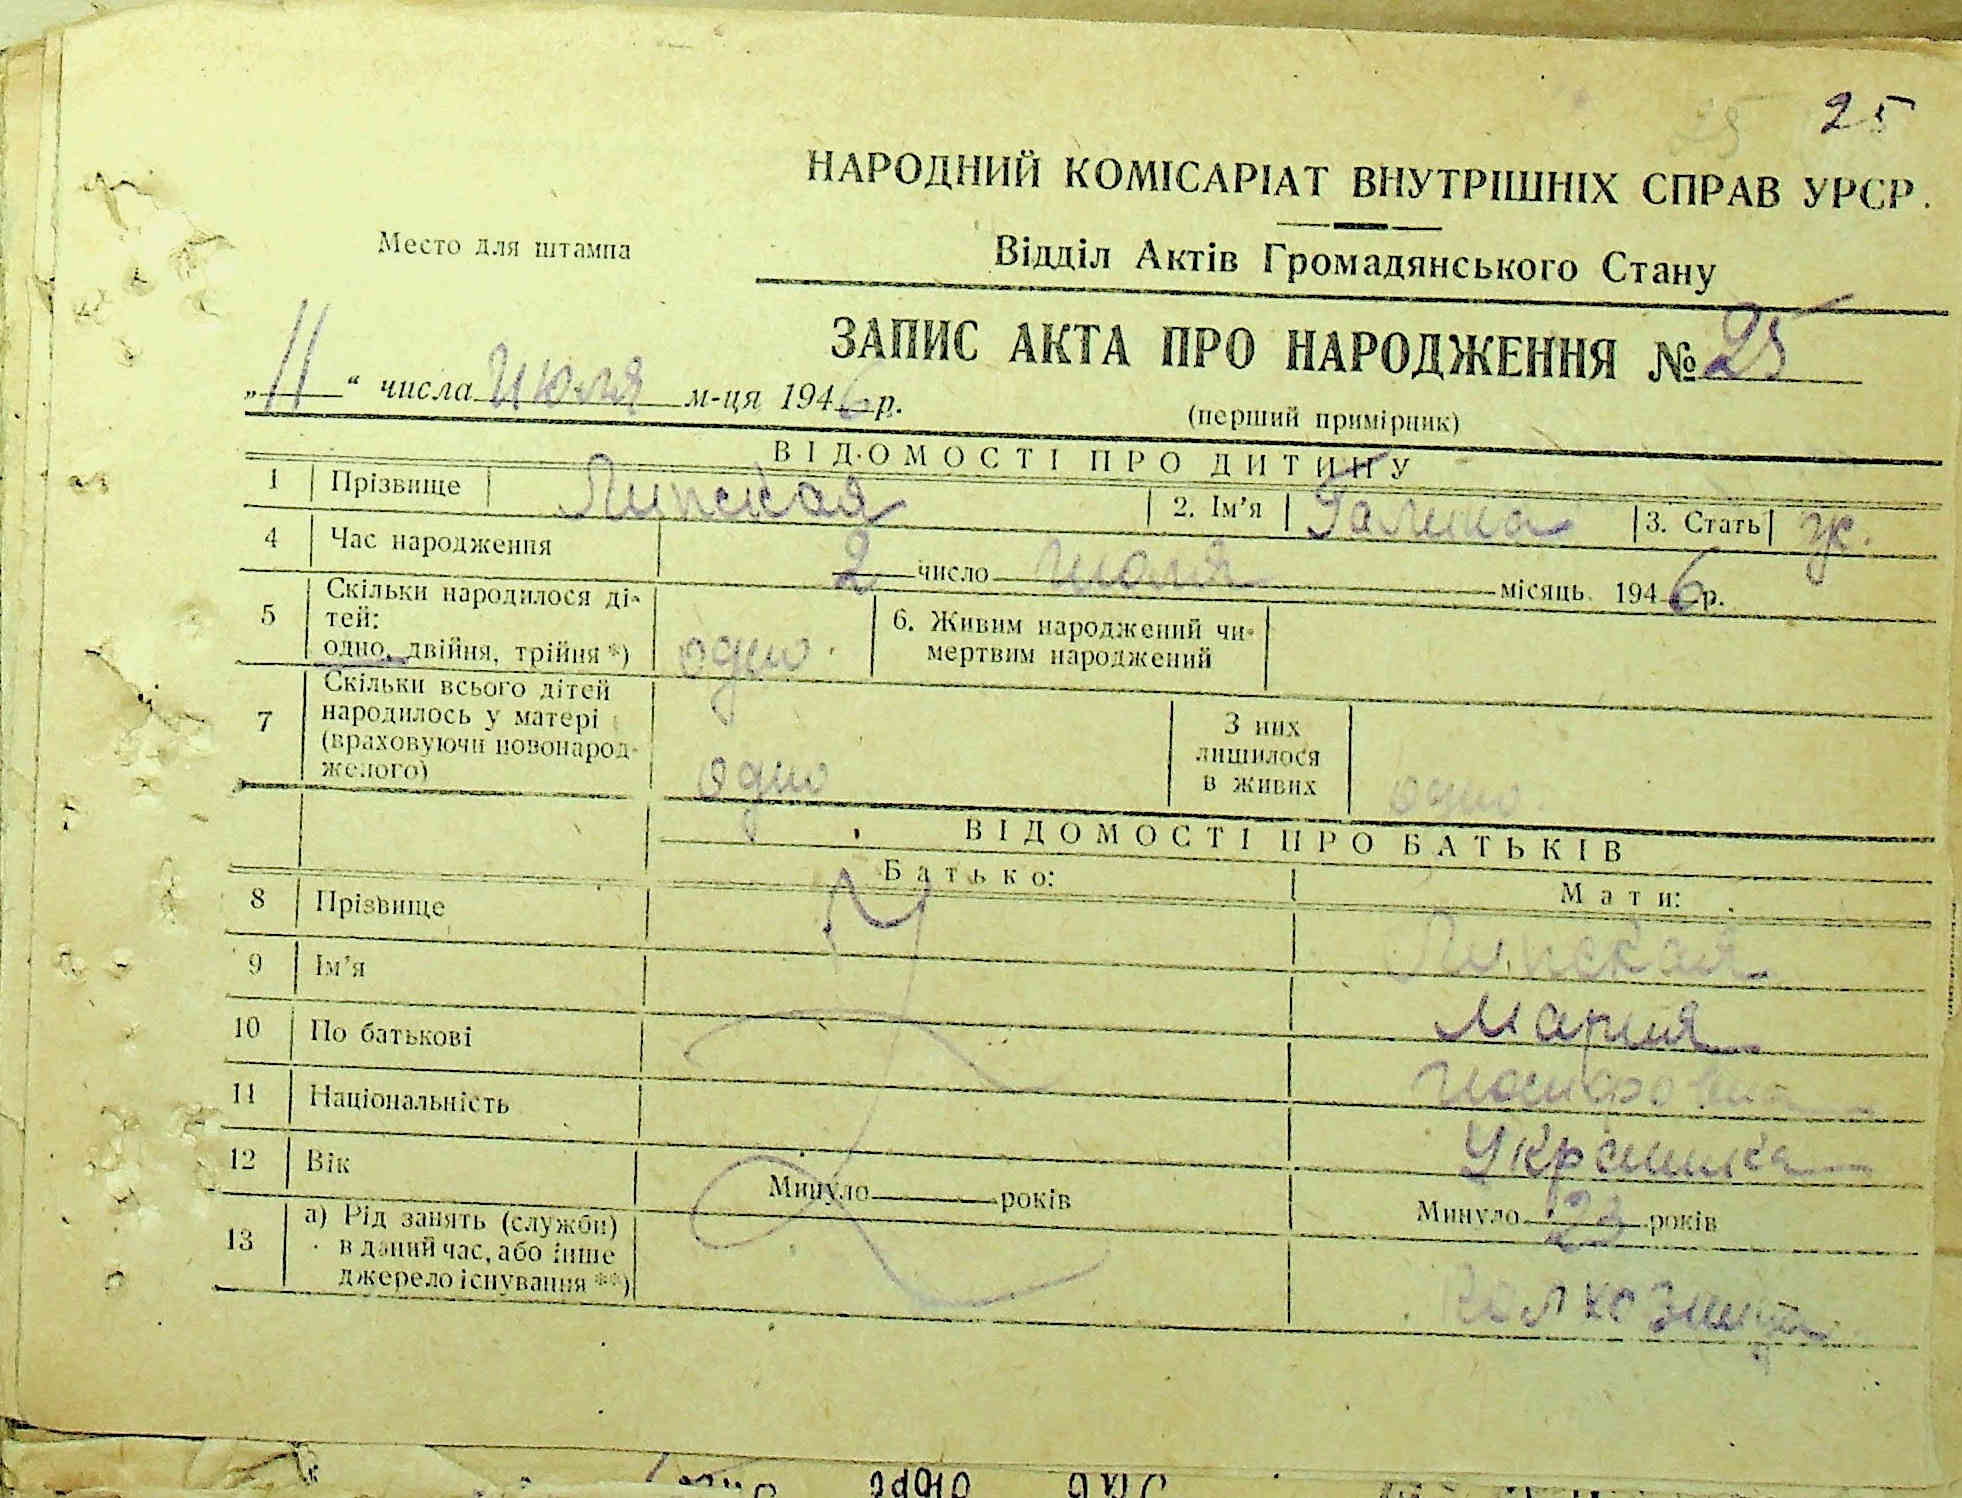 25
25
НАРОДНИЙ КОМІСАРІАТ ВНУТРІШНІХ СПРАВ УРСР.
Место для штампа
Відділ Актів Громадянського Стану
ЗАПИС АКТА ПРО НАРОДЖЕННЯ № 25
„11“ числа июля м-ця 1946 р.
(перший примірник)
ВІДОМОСТІ ПРО ДИТИНУ
1 Прізвище Липская 2. Ім'я Галина 3. Стать ж.
4 Час народження 2 число июля місяць 1946 р.
5 Скільки народилося ді-
тей:
одно, двійня, трійня *) одно.
6. Живим народжений чи
мертвим народжений
7 Скільки всього дітей
народилось у матері
(враховуючи новонарод-
желого) одно
З них
лишилося
в живих одно
ВІДОМОСТІ ПРО БАТЬКІВ
Батько: Мати:
8 Прізвище Липская
9 Ім'я Мария
10 По батькові Иосифовна
11 Національність Украинка
12 Вік Минуло років Минуло 23 років
13 а) Рід занять (служби)
в даний час, або інше
джерело існування **) Колхозница